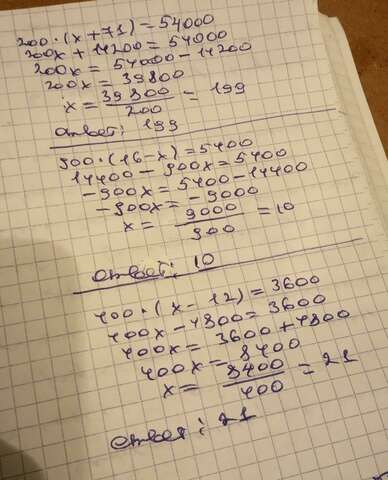 200 · (x + 71) = 54000
200x + 14200 = 54000
200x = 54000 - 14200
200x = 39800
x = 39800 / 200 = 199
ответ: 199
900 · (16 - x) = 5400
14400 - 900x = 5400
-900x = 5400 - 14400
-900x = -9000
x = 9000 / 900 = 10
ответ: 10
400 · (x - 12) = 3600
400x - 4800 = 3600
400x = 3600 + 4800
400x = 8400
x = 8400 / 400 = 21
ответ: 21